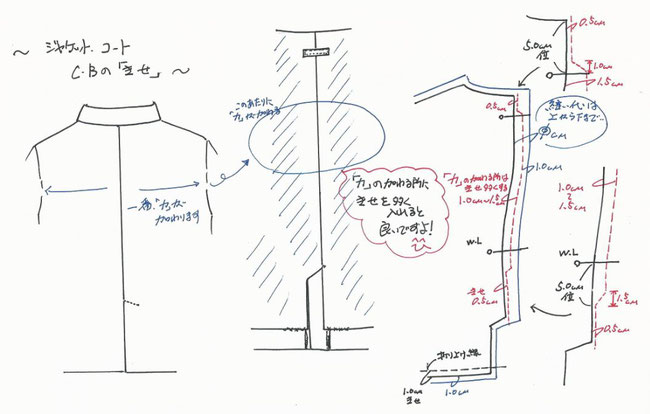 ～ ジャケット. コート
C.Bの「きせ」～
一番「力」が
かかります
このあたりに
「力」がかかる
「力」のかかる所に
きせを多く
入れると
良いですよ!
0.5cm
「力」のかかる所は
きせ多くする
1.0cm～1.5cm
W.L
きせ
0.5cm
折り上げ線
1.0cm
きせ
1.0cm
1.0cm
縫い代は
上から下まで…
cm
5.0cm
位
0.5cm
1.0cm
1.5cm
1.0cm
1.5cm
W.L
5.0cm
位
1.5cm
0.5cm